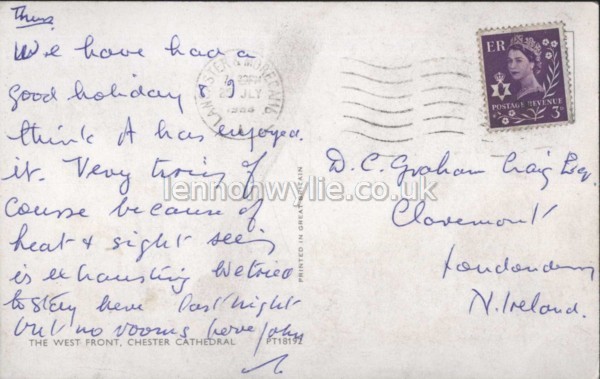 Thurs
We have had a
good holiday & I
think A has enjoyed
it. Very tiring of
course because of
heat & sight seeing
is exhausting We tried
to stay here last night
but no rooms here John
THE WEST FRONT, CHESTER CATHEDRAL PT18192
PRINTED IN GREAT BRITAIN
LANCASTER & MORECAMBE
JULY
ER
POSTAGE REVENUE
3D
D. C. Graham Craig Esq.
Claremont
Londonderry
N. Ireland.
lennonwylie.co.uk